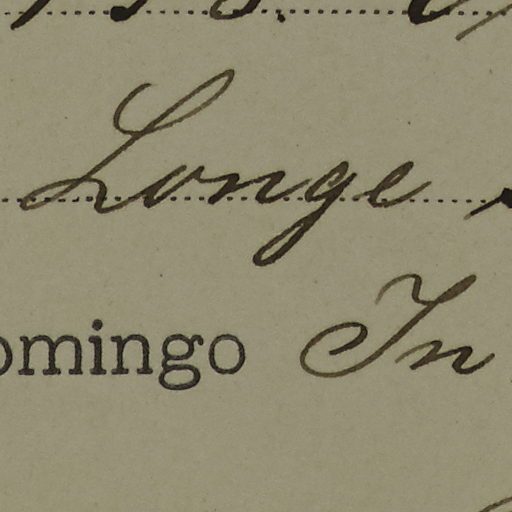 Longe
omingo In